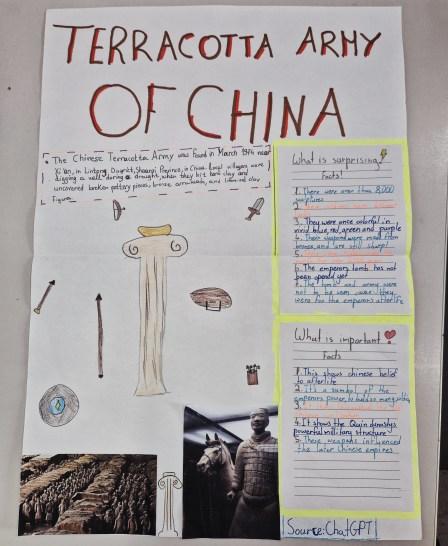 TERRACOTTA ARMY
OF CHINA
The Chinese Terracotta Army was found in March 1974 near
Xi'an, in Lintong District, Shaanxi Province, in China. Local villagers were
digging a well during a drought, when they hit hard clay and
uncovered broken pottery pieces, bronze arrowheads, and life-sized clay
Figures
What is surprising
Facts!
1. There were over than 8,000
sculptures
2.
3. They were once colorful in
vivid blue, red, green and purple
4. Their weapons were made from
bronze, and are still sharp!
5.
6. The emperors tomb has not
been opened yet
7. The tomb and army were
not to be seen, they
were for the emperors afterlife
What is important
Facts
1. This shows chinese belief
to afterlife
2. It's a symbol of the
emperors power, to build so many
3.
4. It shows the Quin dynastys
powerful military structure
5. These weapons influenced
the later Chinese empires
Source: ChatGPT